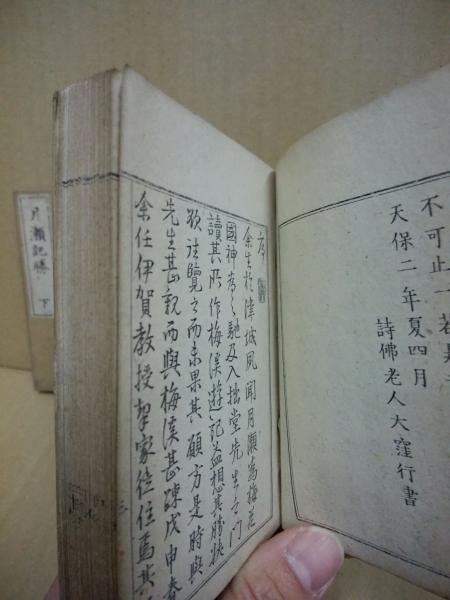 不可止一若是
天保二年夏四月
詩佛老人大窪行書
序
余生於津城夙聞月瀬為梅花
國神為之馳及入拙堂先生之門
讀其所作梅溪遊記益想其勝快
欲往覽之而未果其願方是時與
先生甚親而與梅溪甚疎戊申春
余任伊賀教授挈家徙住焉其
月瀬記勝 下